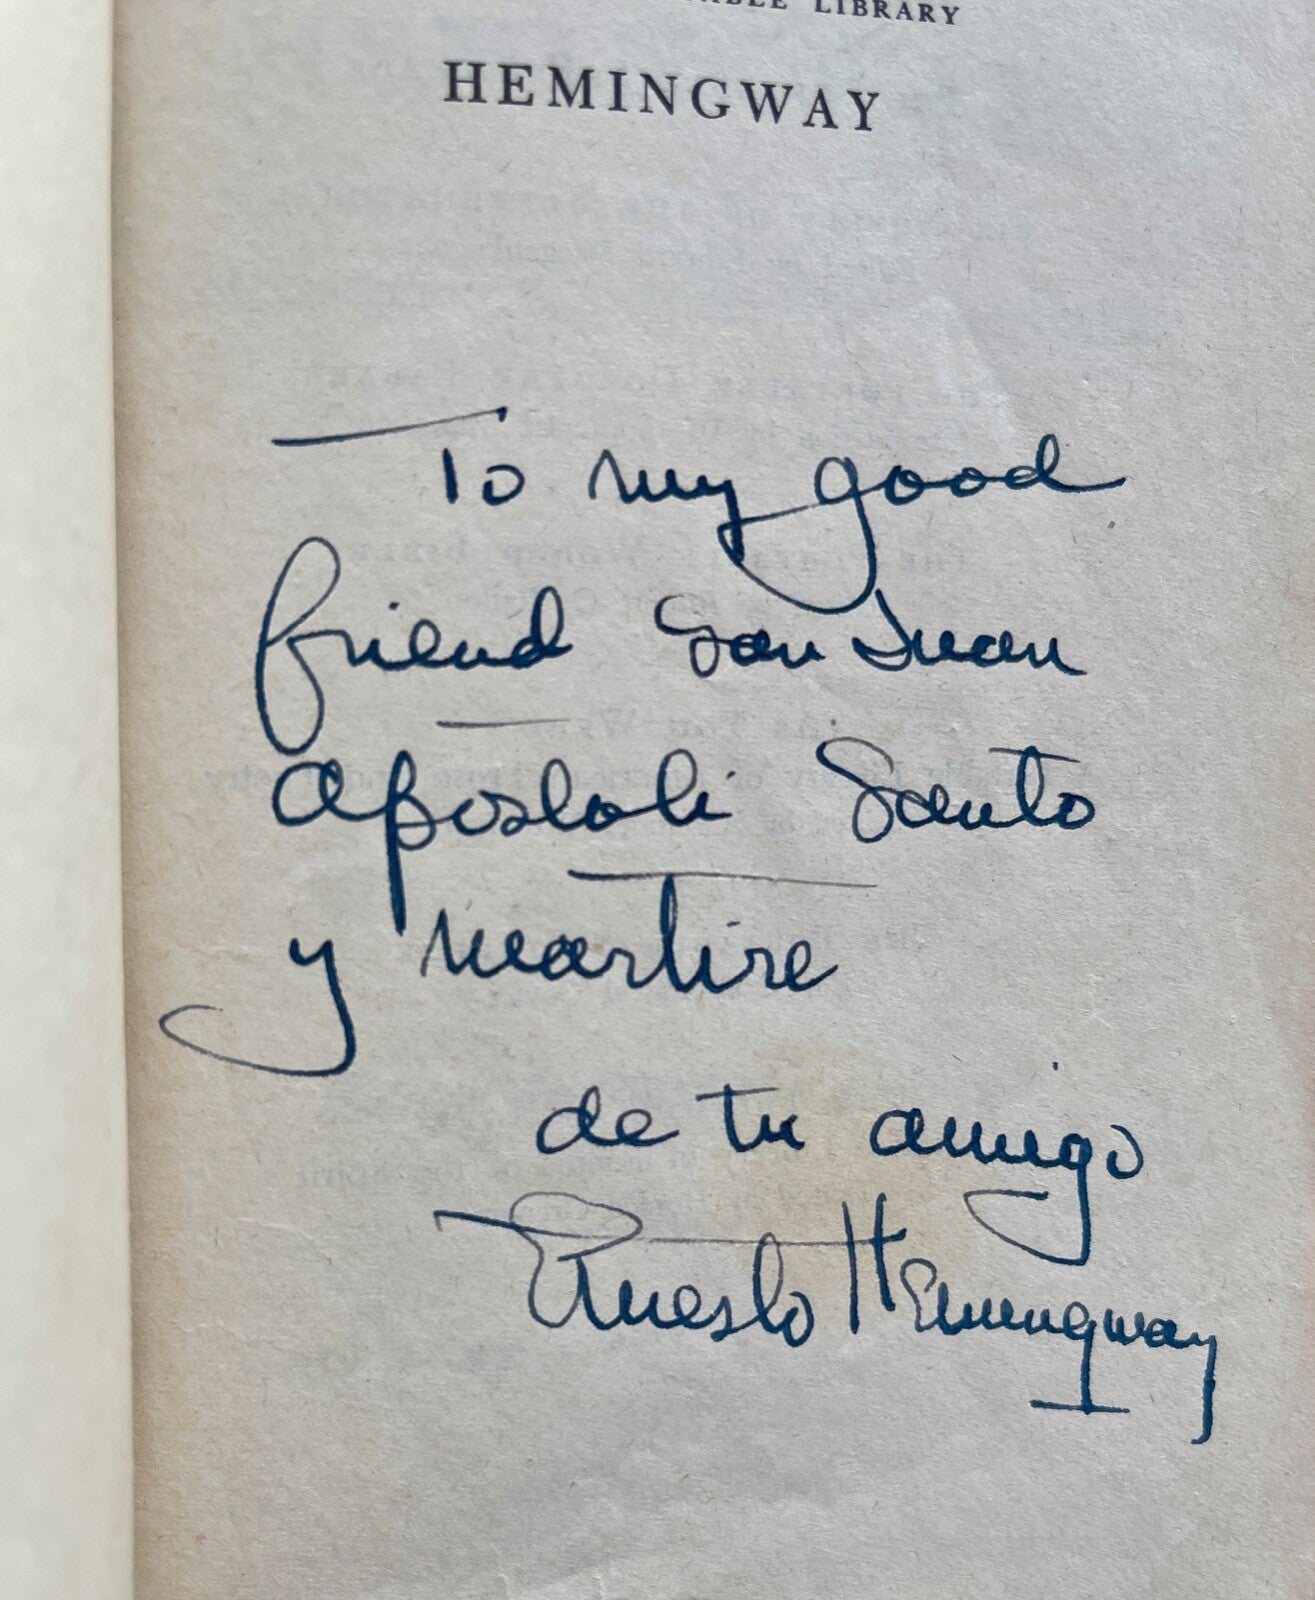 LIBRARY
HEMINGWAY
To my good
friend San Juan
Apostoli Santo
y martire
de tu amigo
Ernesto Hemingway